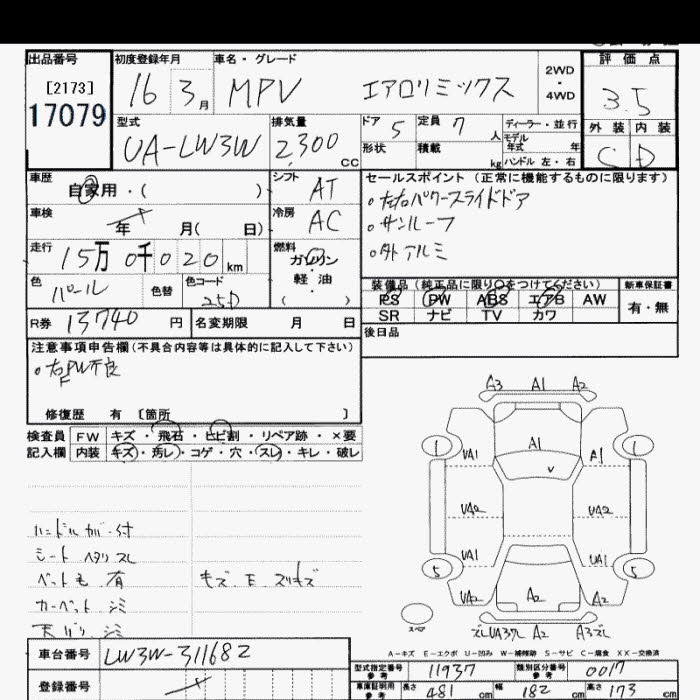 出品番号 初度登録年月 車名・グレード 2WD・4WD 評価点
[2173] 17079 16 3月 MPV エアロリミックス 3.5
型式 排気量 ドア 5 定員 7人 ディーラー・並行 外装 内装
UA-LW3W 2,300cc 形状 積載 kg モデル年式 年 ハンドル 左・右 C D
車歴 自家用・( ) シフト AT セールスポイント (正常に機能するものに限ります)
車検 年 月( 日) 冷房 AC 。左右パワースライドドア
。サンルーフ
走行 15万0千020km 燃料 ガソリン 軽油 ( ) 。外アルミ
色 パール 色替 色コード 25D 装備品 (純正品に限り○をつけてください) 新車保証書
PS PW ABS エアB AW 有・無
R券 13740円 名変期限 月 日 SR ナビ TV カワ
注意事項申告欄(不具合内容等は具体的に記入して下さい) 後日品
。右F PW不良
修復歴 有 [箇所 ]
検査員 FW キズ・飛石・ヒビ割・リペア跡・×要
記入欄 内装 キズ・汚レ・コゲ・穴・スレ・キレ・破レ
A3 A1 A2
1 UA1 A1 A1 1
UA2 UA2
UA1 UA1
5 UA2 A2 A2 5
スペア ズレUA3ワレ A2 A3ズレ
ハンドル
シート ヘタリ スレ
ペット毛 有 キズ E スリキズ
カーペット シミ
天バリ シミ
A-キズ E-エクボ U-凹み W-補修跡 S-サビ C-腐食 XX-交換済
車台番号 LW3W-311682 型式指定番号 参考 11937 類別区分番号 参考 0017
登録番号 車庫証明用 参考 長さ 481cm 幅 182cm 高さ 173cm